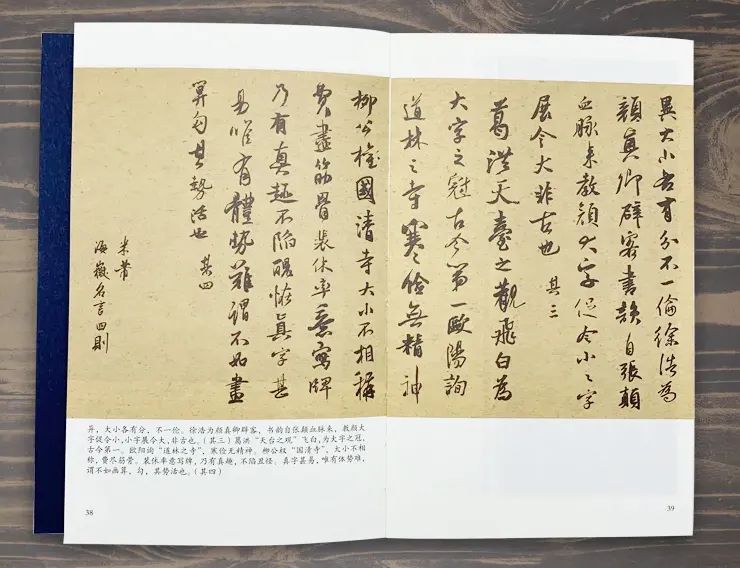 異大小各有分不一倫徐浩為
顏真卿辟客書韻自張顛
血脉来教顏大字促令小〻字
展令大非古也 其三
葛洪天臺之觀飛白為
大字之冠古今第一歐陽詢
道林之寺寒儉無精神
柳公權國清寺大小不相稱
費盡筋骨裴休率意寫牌
乃有真趣不陷醜怪真字甚
易唯有體勢難謂不如畫
算勻其勢活也 其四
米芾
海嶽名言四則
异，大小各有分，不一伦。徐浩为颜真卿辟客，书韵自张颠血脉来，教颜大
字促令小，小字展令大，非古也。（其三）葛洪“天台之观”飞白，为大字之冠，
古今第一。欧阳询“道林之寺”，寒俭无精神。柳公权“国清寺”，大小不相
称，费尽筋骨。裴休率意写牌，乃有真趣，不陷丑怪。真字甚易，唯有体势难，
谓不如画算，勾，其势活也。（其四）
38
39